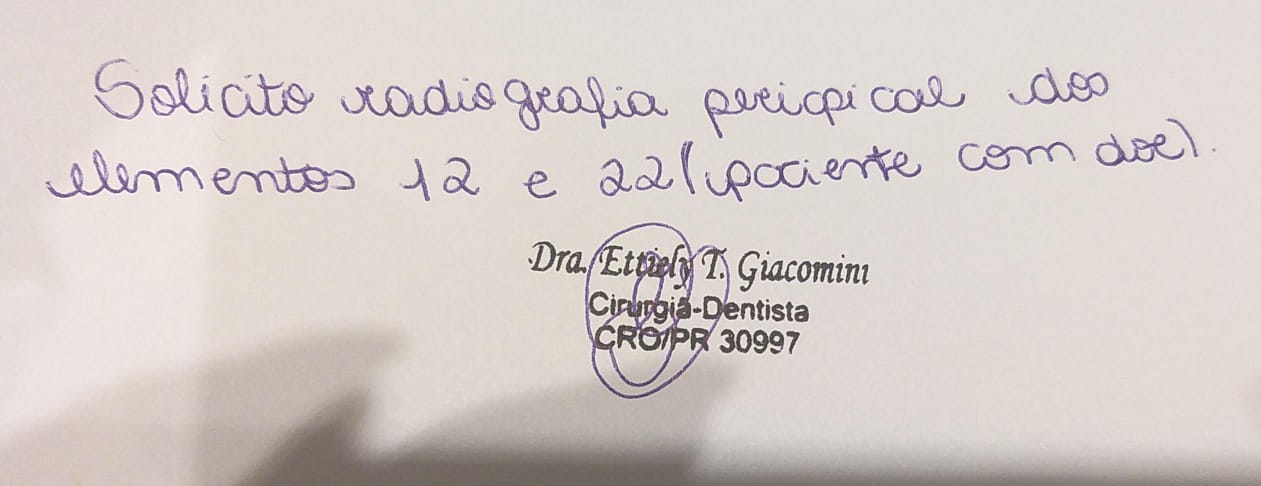 Solicito radiografia periapical dos
elementos 12 e 22 (paciente com dor).
Dra. Ettiely T. Giacomini
Cirurgiã-Dentista
CRO/PR 30997